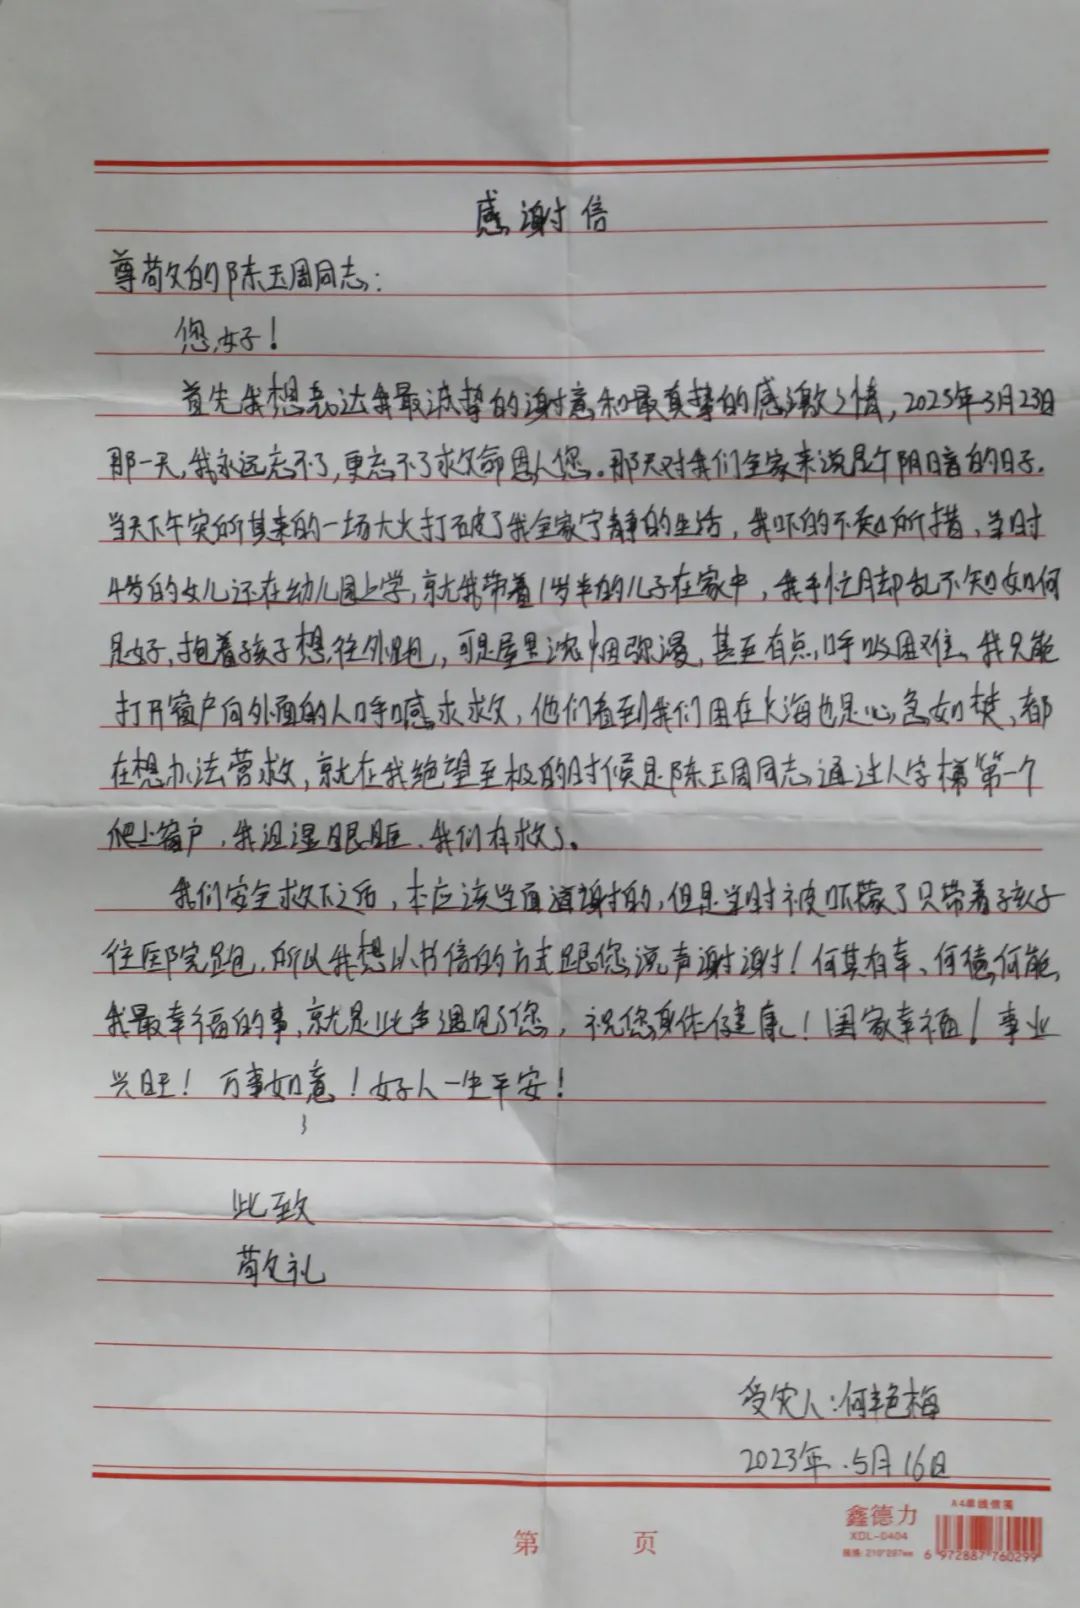 感谢信
尊敬的陈玉周同志:
您好!
首先我想表达我最诚挚的谢意和最真挚的感激之情,2023年3月23日
那一天,我永远忘不了,更忘不了救命恩人您。那天对我们全家来说是个阴暗的日子.
当天下午突所其来的一场大火打破了我全家宁静的生活,我吓的不知所措,当时
4岁的女儿还在幼儿园上学,就我带着1岁半的儿子在家中,我手忙脚乱不知如何
是好,抱着孩子想往外跑,可是屋里浓烟弥漫,甚至有点呼吸困难、我只能
打开窗户向外面的人呼喊求救,他们看到我们困在火海也是心急如焚,都
在想办法营救,就在我绝望至极的时候是陈玉周同志通过人字梯第一个
爬上窗户,我泪湿眼眶、我们有救了。
我们安全救下之后,本应该当面道谢的,但是当时被吓懵了只带着孩子
往医院跑,所以我想以书信的方式跟您说声谢谢!何其有幸、何德何能,
我最幸福的事,就是此生遇见了您,祝您身体健康!国家幸福!事业
兴旺!万事如意!好人一生平安!
此致
敬礼
受灾人:何艳梅
2023年.5月16日
第 页
鑫德力
XDL-0404
规格:210*297mm
A4单线信笺
6 972887 760299